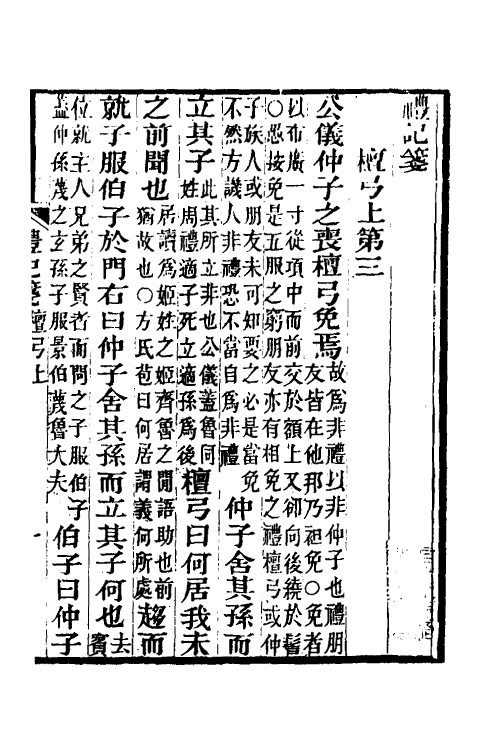 禮記箋
檀弓上第三
公儀仲子之喪檀弓免焉
故爲非禮以非仲子也禮朋
友皆在他邦乃袒免○免者
以布廣一寸從項中而前交於額上又卻向後繞於髻
○愚按免是五服之窮朋友亦有相免之禮檀弓或仲
子族人或朋友未可知要之必是當免
不然方譏人非禮恐不當自爲非禮
仲子舍其孫而
立其子
此其所立非也公儀蓋魯同
姓周禮適子死立適孫爲後
檀弓曰何居我未
之前聞也
居讀爲姬姓之姬齊魯之間語助也前
猶故也○方氏苞曰何居謂義何所處
趨而
就子服伯子於門右曰仲子舍其孫而立其子何也
去
賓
位就主人兄弟之賢者而問之子服伯子
蓋仲孫蔑之玄孫子服景伯蔑魯大夫
伯子曰仲子
禮記箋檀弓上
一